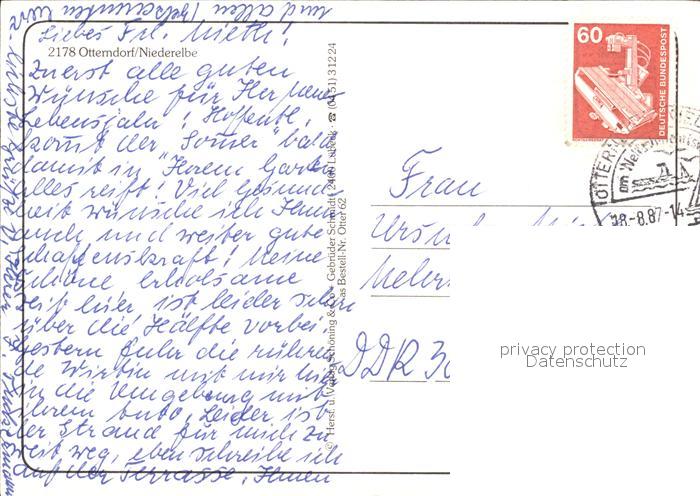 und allen
Liebes Frl. Mieth!
2178 Otterndorf/Niederelbe
Zuerst alle guten
Wünsche für Ihr neues
Lebensjahr! Hoffentl.
kommt der "Sommer" bald
damit in Ihrem Garten
alles reift! Viel Gesund-
heit wünsche ich Ihnen
auch und weiter gute
Schaffenskraft! Meine
schöne erholsame
Zeit hier, ist leider schon
über die Hälfte vorbei.
Gestern fuhr die rühren-
de Wirtin mit mir hier
in die Umgebung mit
ihrem Auto. Leider ist
der Strand für mich zu
weit weg, eben schreibe ich
auf der Terrasse, Ihnen
© Herst. u. Verlag Schöning & Co + Gebrüder Schmidt · 2400 Lübeck · ☎ (0451) 31224
Bestell-Nr. Otter 62
60
DEUTSCHE BUNDESPOST
OTTERN
am Weltsch
18.-8.87-14
Frau
DDR 30
privacy protection
Datenschutz